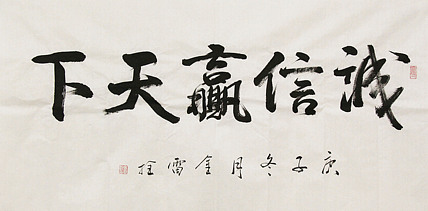 誠信赢天下
庚子冬月金雷